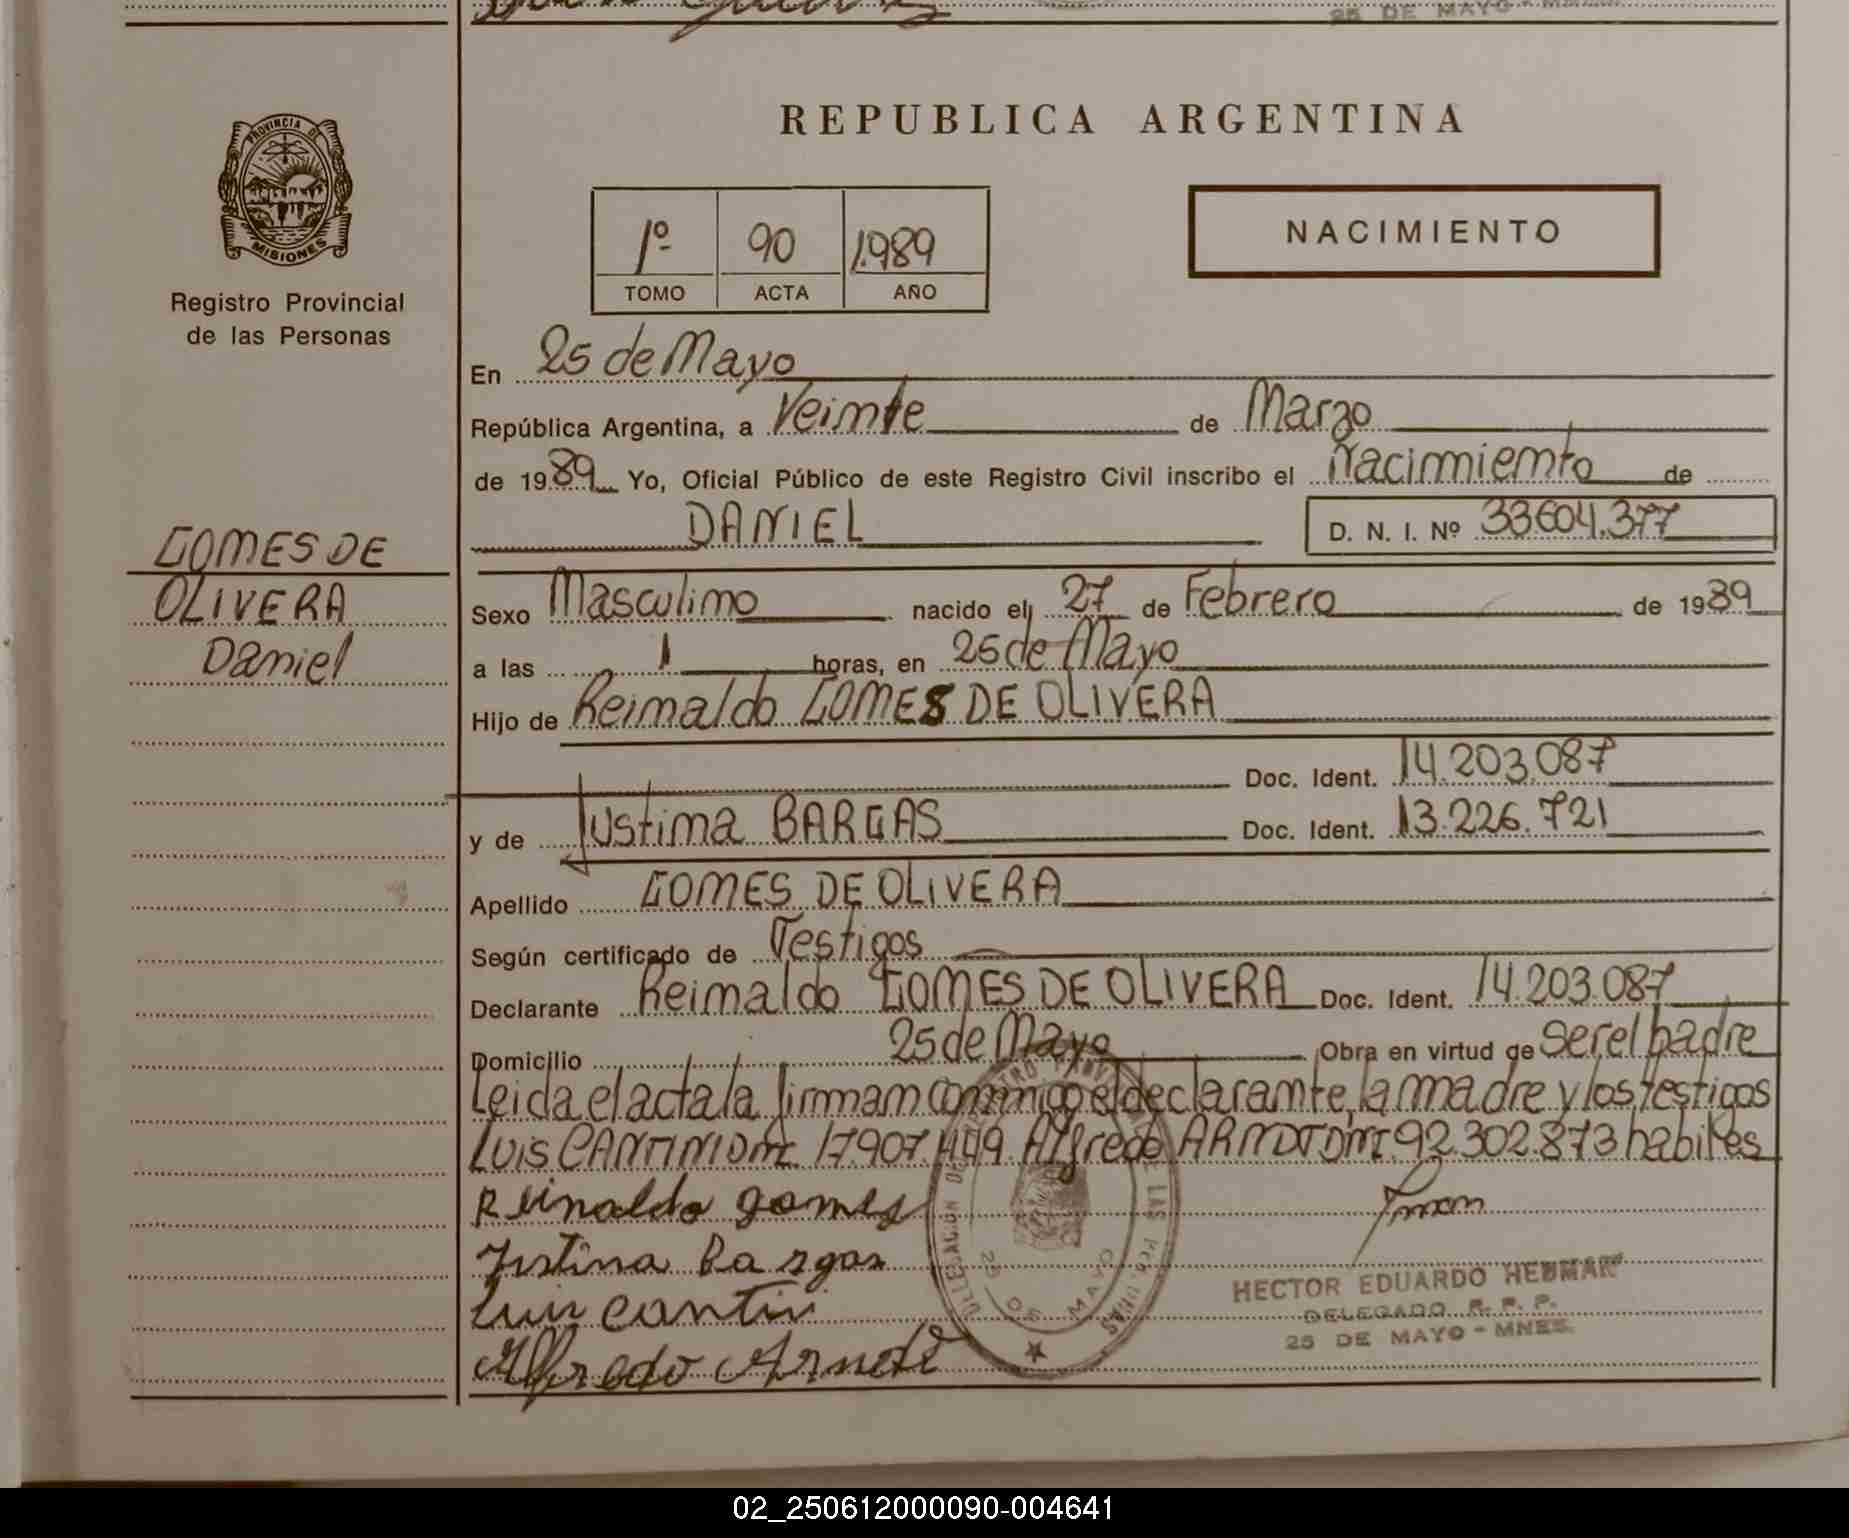 25 DE MAYO - MNES.
REPUBLICA ARGENTINA
PROVINCIA DE
MISIONES
Registro Provincial
de las Personas
1º 90 1.989
TOMO ACTA AÑO
NACIMIENTO
En 25 de Mayo
República Argentina, a Veinte de Marzo
de 1989 Yo, Oficial Público de este Registro Civil inscribo el Nacimiento de
DANIEL D. N. I. Nº 33.604.377
GOMES DE
OLIVERA
Daniel
Sexo Masculino nacido el 27 de Febrero de 1989
a las 1 horas, en 25 de Mayo
Hijo de Reinaldo GOMES DE OLIVERA
Doc. Ident. 14.203.087
y de Justina BARGAS Doc. Ident. 13.226.721
Apellido GOMES DE OLIVERA
Según certificado de Testigos
Declarante Reinaldo GOMES DE OLIVERA Doc. Ident. 14.203.087
Domicilio 25 de Mayo Obra en virtud de ser el padre
Leida el acta la firman conmigo el declarante, la madre y los testigos
Luis CANTINI DNI. 17.907.449. Alfredo ARNDT DNI. 92.302.873 habiles
Reinaldo gomes
Justina Bargas
Luis Cantini
Alfredo Arndt
DELEGACION DE
25 DE MAYO
HECTOR EDUARDO HEDMAN
DELEGADO R. P. P.
25 DE MAYO - MNES.
02_250612000090-004641